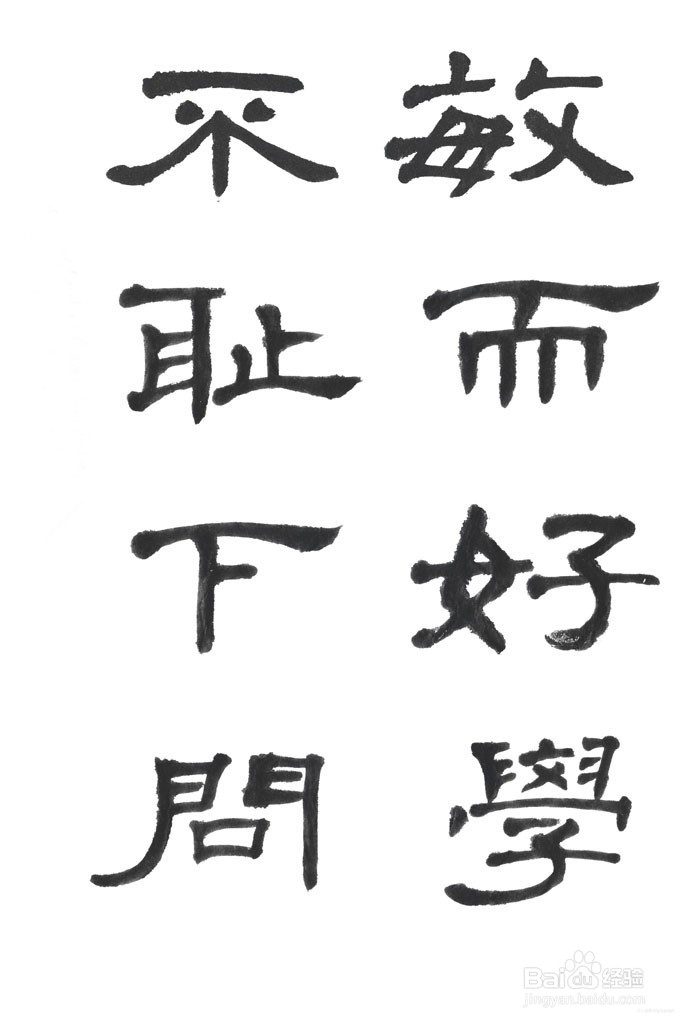 敏而好學
不恥下問
Baidu经验
jingyan.baidu.com